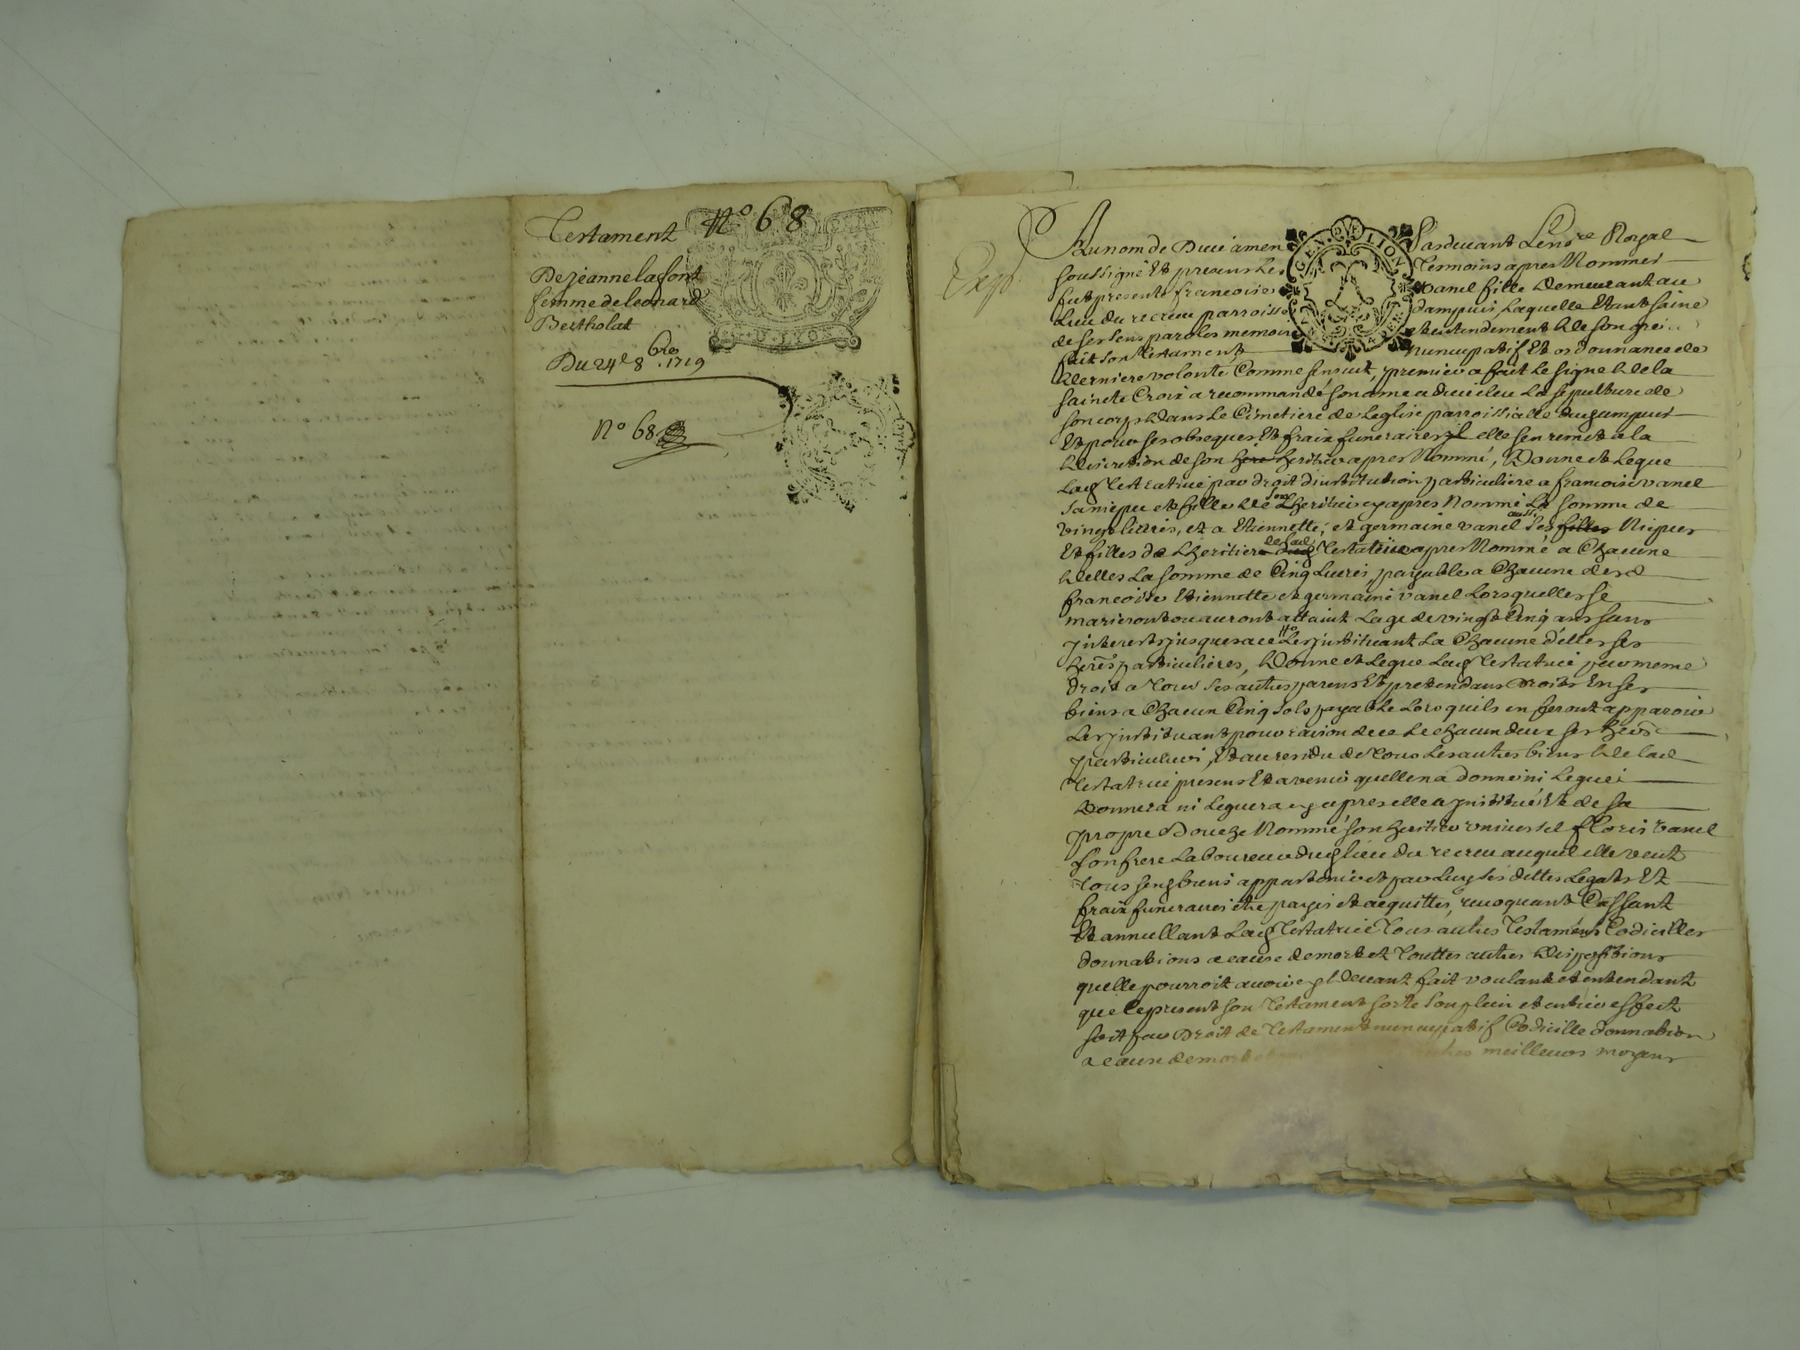 Testament N° 68
De jeanne lafont
femme de leonard
Bertholat
Du 24e 8bre 1719
N° 68
Exp
Au nom de Dieu amen Pardevant Le nore Royal
soussigné Et presens Les Temoins apres Nommes
fut presente francoise vanel fille Demeurant au
Lieu du recreu parroisse dampuis Laquelle Etant saine
de ses sens paroles memoire et entendement de son gré
fait son Testament nuncupatif Et ordonnance de
derniere volonte Comme s'ensuit, premier a fait Le signe de la
saincte Croix a recommandé son ame a dieu eleu La sepulture de
son corps dans Le Cimetiere de Leglise parroissialle dud ampuis
Et pour ses obseques Et fraix funeraires elle sen remet a la
discretion de son heritier apres Nommé, Donne et Legue
Lad Testatrice par droit dinstitution particuliere a francoise vanel
sa niepce et fille de son Lheritier cy apres Nommé La somme de
vingt livres, et a Etiennette, et germaine vanel aussi ses filles Niepces
Et filles de Lheritier de Lad Testatrice apres Nommé a Chacune
delles La somme de Cinq Livres, payable a Chacune desd
francoise Etiennette et germaine vanel Lors quelles se
marieront ou auront attaint Lage de vingt Cinq ans sans
jnterests jusques a ce Les jnstituant La Chacune d'elles ses
heres particulieres, Donne et Legue Lad Testatrice par meme
droit a Tous ses autres parens Et pretendans droits En ses
biens a Chacun Cinq sols payable Lors quils en feront apparoir
Les jnstituant pour raison de ce Le chacun deux ses heres
particuliers, Et au residu de Tous Les autres biens de Lad
Testatrice presens Et avenir quelle na donné ni Legué
Donnera ni Leguera cy apres elle a jnstitué Et de sa
propre Bouche Nommé son heritier universel floris vanel
son frere Laboureur dud lieu du recreu auquel elle veut
Tous sesd biens appartenir et par Luy ses dettes Legats Et
fraix funeraires etre payés et acquittés, revoquant Cassant
Et annullant Lad Testatrice Tous autres Testaments Codicilles
donnations a cause de mort et Touttes autres Dispositions
quelle pourroit avoir cy devant fait voulant et entendant
que le present son Testament sorte son plein et entier effect
soit par Droit de Testament nuncupatif Codicille donnation
a cause de mort meilleurs moyens